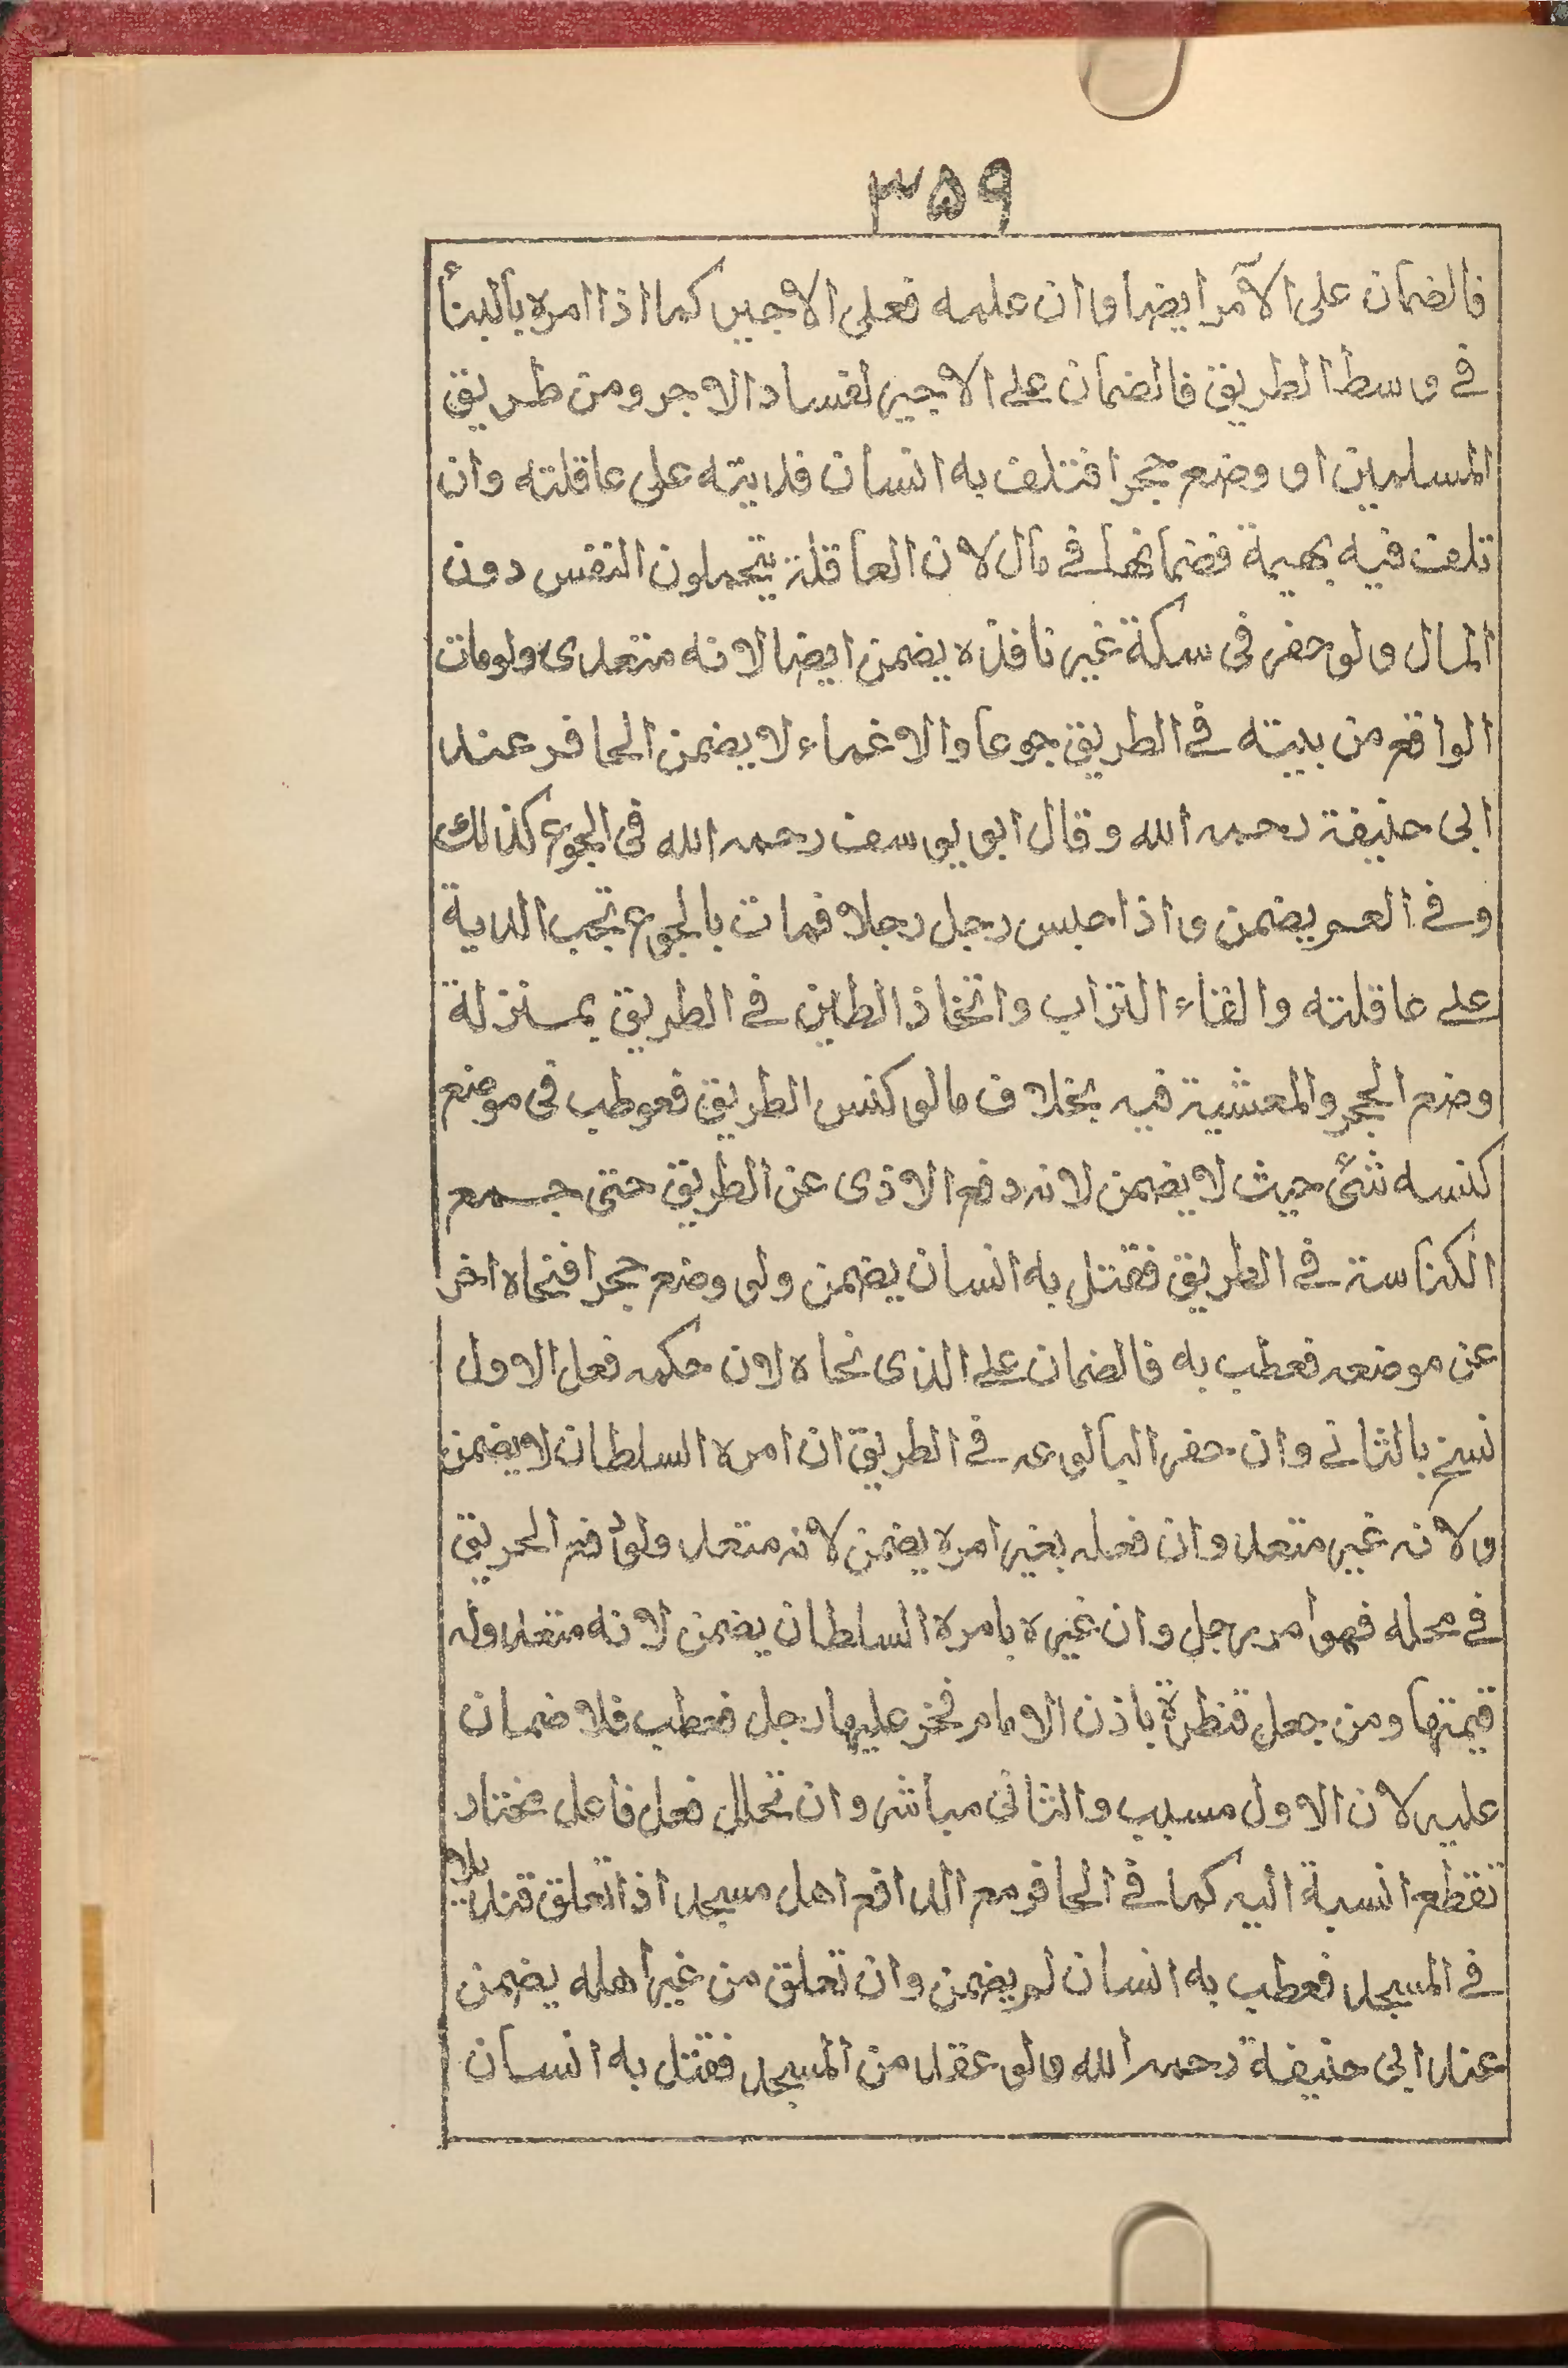 ٣٥٩
فالضمان على الآمر ايضا وان علمه فعلى الاجير كما اذا امره بالبنأ
فى وسط الطريق فالضمان على الاجير لفساد الاجر ومن طريق
المسلمين او وضع حجرا فتلف به انسان فديته على عاقلته وان
تلفت فيه بهيمة فضمانها فى مال لان العاقلة يتحملون النفس دون
المال ولو حفر فى سكة غير نافذه يضمن ايضا لانه متعدى ولومات
الواقع من بيته فى الطريق جوعا والاغماء لا يضمن الحافر عند
ابى حنيفة رحمه الله وقال ابو يوسف رحمه الله فى الجوع كذالك
وفى الغم يضمن واذا حبس رجل رجلا فمات بالجوع تجب الدية
على عاقلته والقاء التراب واتخاذ الطين فى الطريق بمنزلة
وضع الحجر والمعشية فيه بخلاف مالو كنس الطريق فعوطب فى موضع
كنسه شئ حيث لا يضمن لانه دفع الاذى عن الطريق حتى جمع
الكناسة فى الطريق فقتل به انسان يضمن ولو وضع حجرا فنحاه اخر
عن موضعه فعطب به فالضمان على الذى نحاه لان حكمه فعل الاول
نسخ بالثانى وان حفر البالوعه فى الطريق ان امره السلطان لا يضمن
ولانه غير متعد وان فعله بغير امره يضمن لانه متعد ولو الحريق
فى محله فهو امر رجل وان غيره بامره السلطان يضمن لانه متعد وله
قيمتها ومن جعل قنطرة باذن الامام فخر عليها رجل فعطب فلا ضمان
عليه لان الاول مسبب والثانى مباشر وان تخلل فعل فاعل مختار
تقطع انسبة اليه كما فى الحافر مع الدافع اهل مسجد اذا تعلق قنديلا
فى المسجد فعطب به انسان لم يضمن وان تعلق من غير اهله يضمن
عند ابى حنيفة رحمه الله ولو عقد من المسجد فقتل به انسان